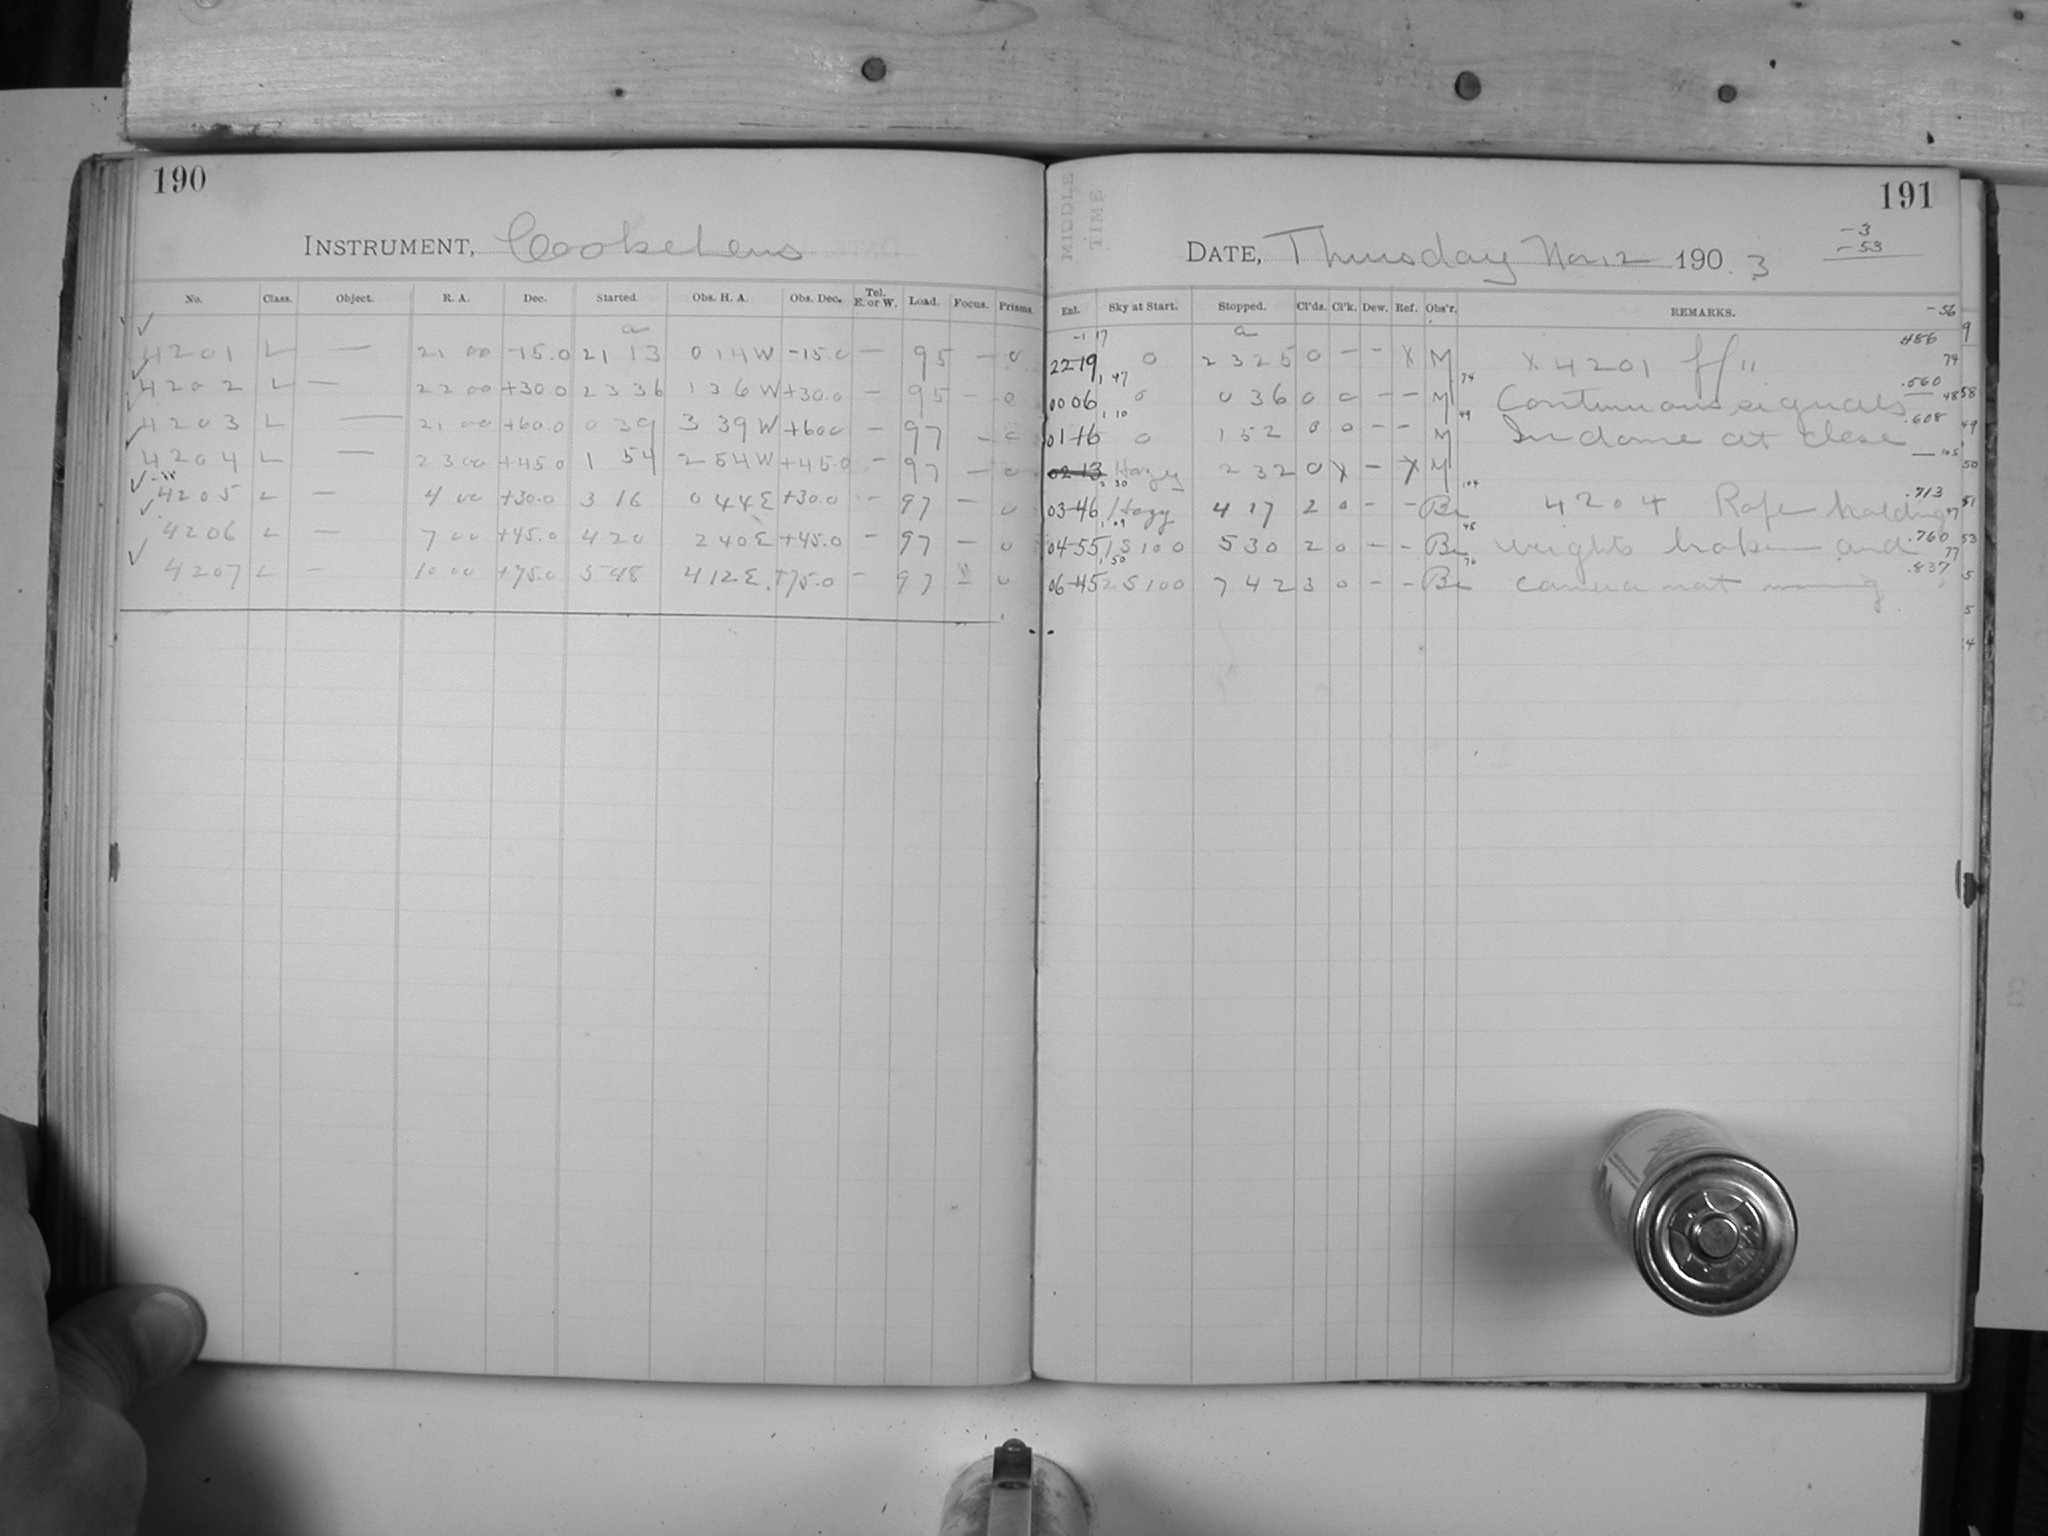 190
INSTRUMENT, Cooke Lens
No. Class. Object. R. A. Dec. Started. Obs. H. A. Obs. Dec. Tel. E. or W. Load. Focus. Prisms.
a
4201 L — 21 00 -15.0 21 13 0 14 W -15.0 — 95 — 0
4202 L — 22 00 +30.0 23 36 1 36 W +30.0 — 95 — 0
4203 L — 21 00 +60.0 0 39 3 39 W +60.0 — 97 — 0
4204 L — 23 00 +45.0 1 54 2 54 W +45.0 — 97 — 0
4205 L — 4 00 +30.0 3 16 0 44 E +30.0 — 97 — 0
4206 L — 7 00 +45.0 4 20 2 40 E +45.0 — 97 — 0
4207 L — 10 00 +75.0 5 48 4 12 E. +75.0 — 97 — 0
MIDDLE
TIME
191
DATE, Thursday Nov. 12 1903
-3
-53
-56
Ext. Sky at Start. Stopped. Cl'ds. Cl'k. Dew. Ref. Obs'r. REMARKS.
-1 17 a .486
22-19 0 23 25 0 — — X M X 4201 ff" 74
1 47 74 .560
00 06 0 0 36 0 0 — — M Continuous signals 48
1 10 49 .608
01-16 0 1 52 0 0 — — M In dome at close
105
02-13 Hazy 2 32 0 X — X M
2 30 104 .713
03-46 Hazy 4 17 2 0 — — Be 4204 Rope holding 47
1 09 48 .760
04-55 1S100 5 30 2 0 — — Be weights broken and 77
1 50 76 .837
06-45 2S100 7 42 3 0 — — Be camera not moving